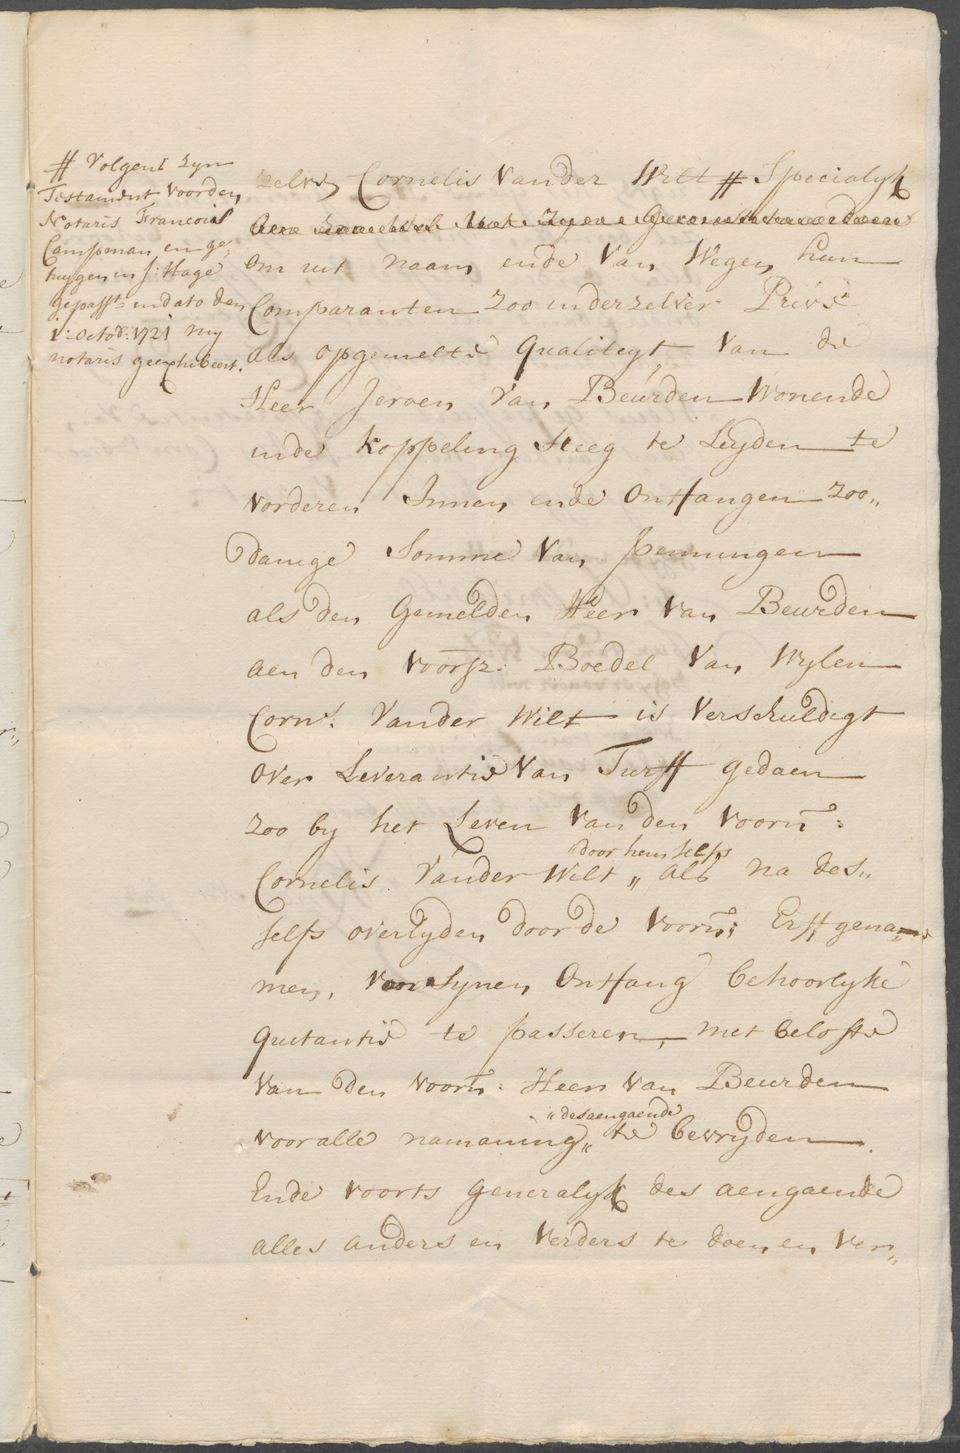 # Volgent zyn
Testament voorden
Notaris Francois
Campman en ge-
tuygen in s'Hage
gepass.t in dato den
1:e Octob: 1721 my
notaris geexhibeert.
zelven Cornelis Vander Wilt # Specialyk
om uit naam ende van Wegen hun
Comparanten zoo in derzelver Privé
als opgemelte qualiteyt, van de
Heer Jeroen van Beurden Wonende
inde Koppeling Steeg te Leyden te
vorderen Innen ende Ontfangen zoo„
danige Somme van penningen
als den Gemelden Heer van Beurden
aen den voorsz: Boedel van Wylen
Corn.s Vander Wilt is Verschuldigt
over Leverantie van Turff gedaen
zoo by het Leven van den voorn:
door hem selfs
Cornelis Vander Wilt „ als na des„
selfs overlyden door de voorn: Erffgena-
men, voor synen Ontfang behoorlyke
quitantie te passeren, met belofte
van den voorn: Heer van Beurden
„desaengaende
voor alle namaning„ te bevryden.
Ende voorts Generalyk des aengaende
alles anders en verders te doen en ver„